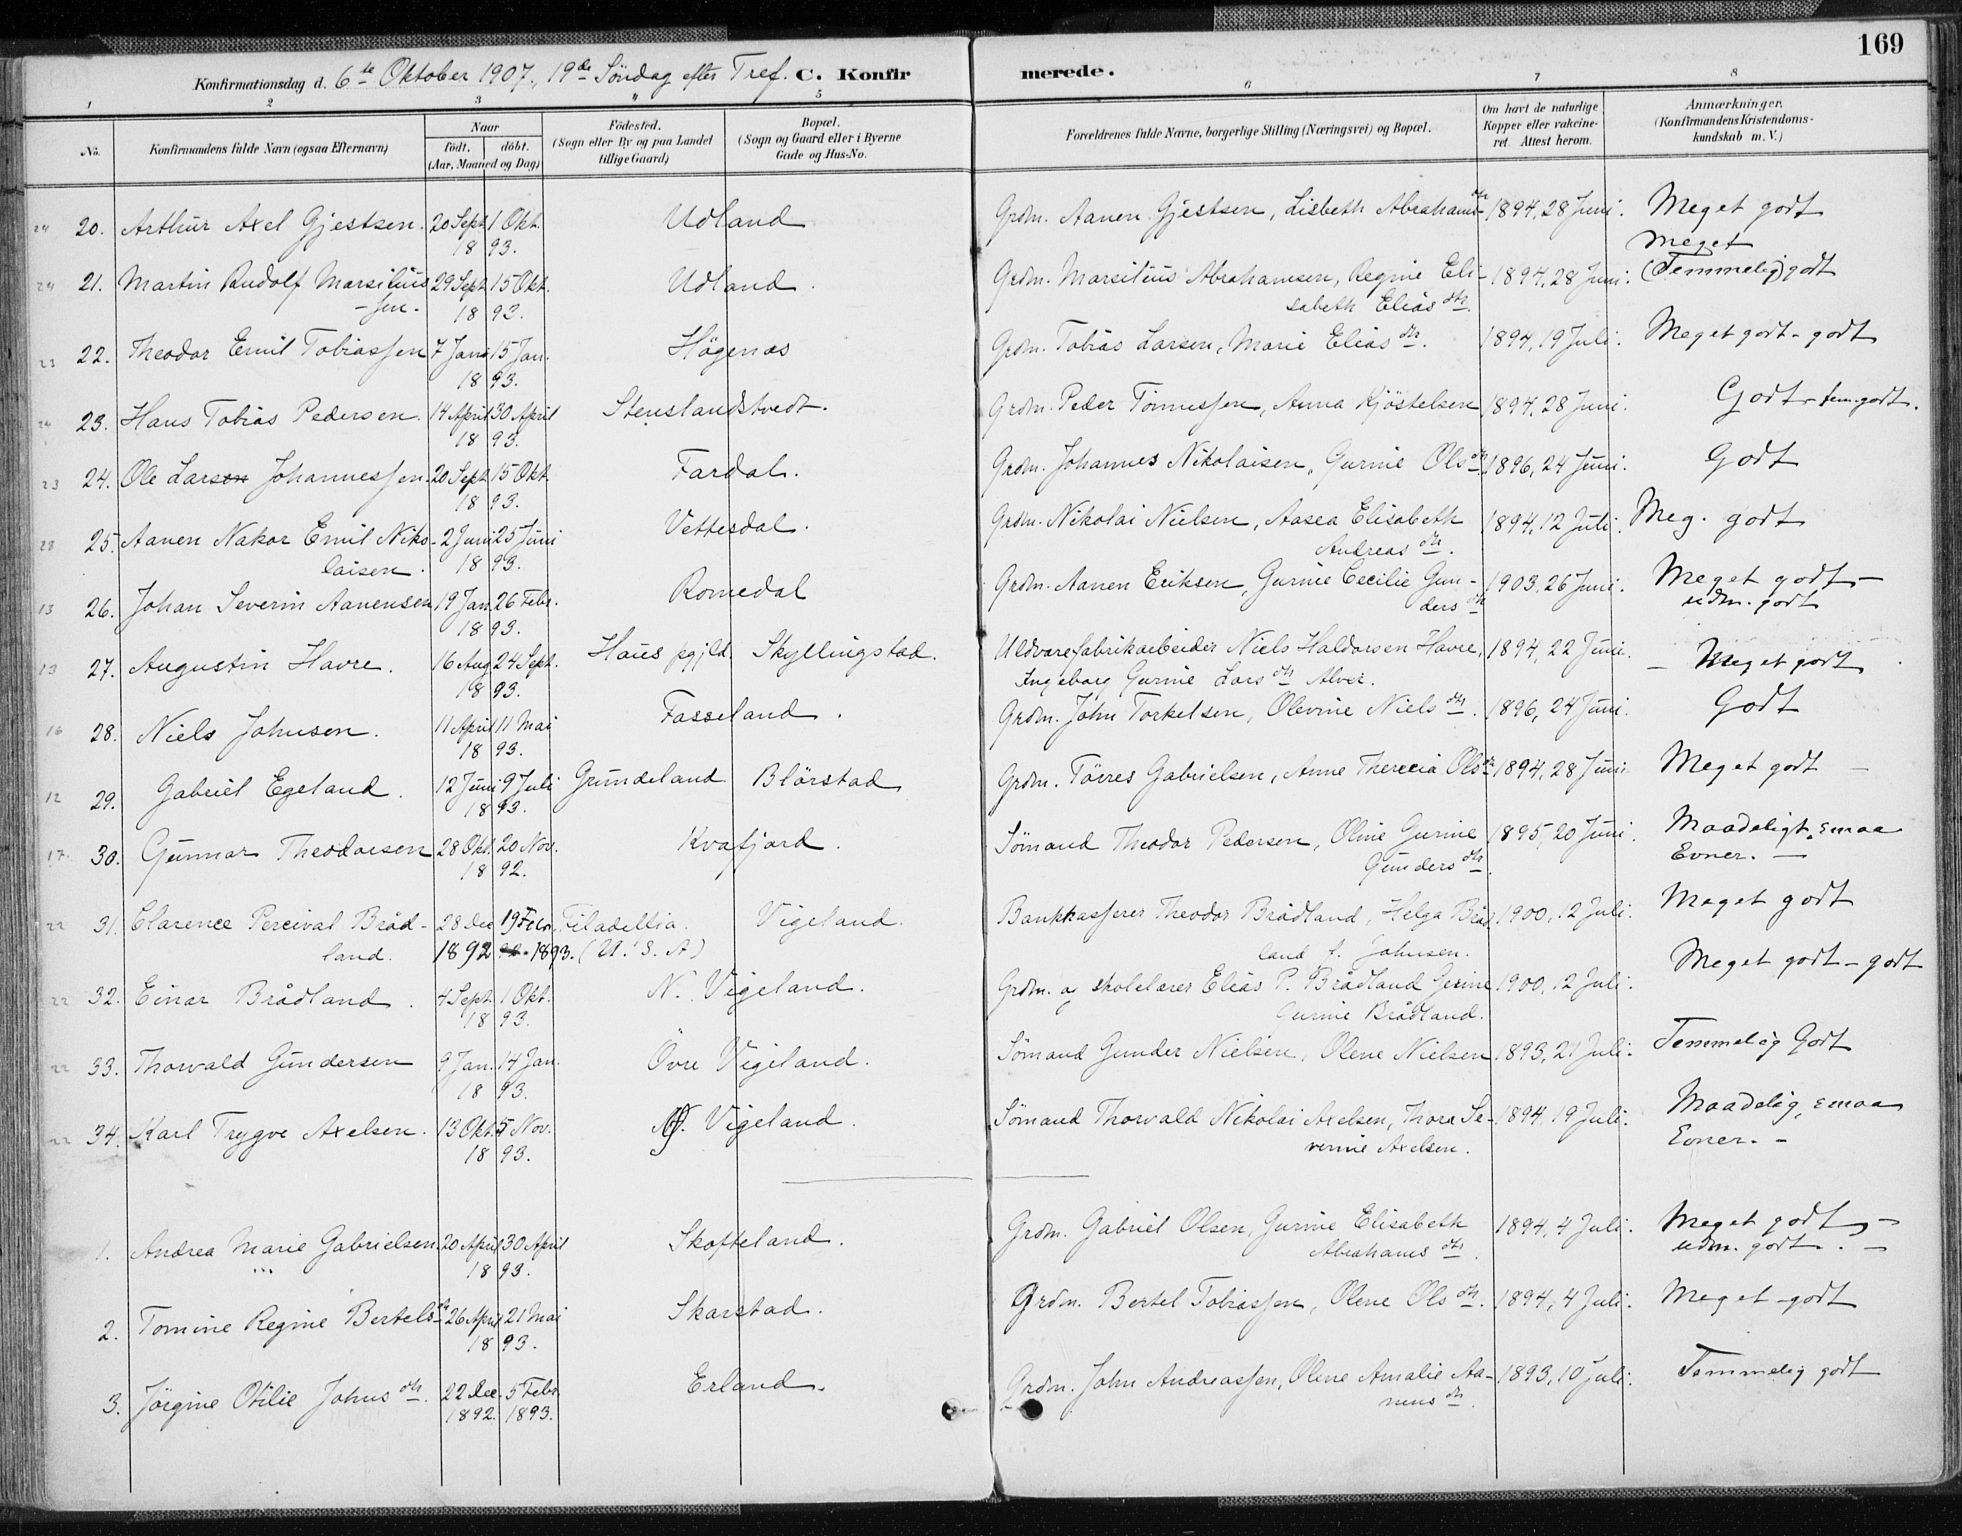 169
Konfirmationsdag d. 6te Oktober 1907, 19de Söndag efter Tref. C. Konfirmerede.
1 2 3 4 5 6 7 8
No. Konfirmandens fulde Navn (ogsaa Efternavn) Naar födt. döbt. (Aar, Maaned og Dag) Födested. (Sogn eller By og paa Landet tillige Gaard) Bopæl. (Sogn og Gaard eller i Byerne Gade og Hus-No. Forældrenes fulde Navne, borgerlige Stilling (Næringsvei) og Bopæl. Om havt de naturlige Kopper eller vakcineret. Attest herom. Anmærkninger. (Konfirmandens Kristendomskundskab m. V.)
24 20. Arthur Axel Gjestsen. 20 Sept. 1 Okt. Udland Grdm. Aanen Gjestsen, Lisbeth Abrahamsdtr 1894, 28 Juni. Meget godt
18 93.
meget
24 21. Martin Rudolf Marsilius 29 Sept. 15 Okt. Udland. Grdm. Marsilius Abrahamsen, Regine Eli- 1894, 28 Juni. (Temmelig) godt
-sen. 18 93. sabeth Eliasdtr.
23 22. Theodor Emil Tobiassen 7 Jan. 15 Jan. Högenæs Grdm. Tobias Larsen, Marie Eliasdtr. 1894, 19 Juli. Meget godt - godt
18 93.
24 23. Hans Tobias Pedersen. 14 April 30 April Stenslandstvedt. Grdm. Peder Tönnessen, Anna Kjöstelsen 1894, 28 Juni. Godt - tem. godt.
18 93.
23 24. Ole Larson Johannessen. 20 Sept. 15 Okt. Fardal. Grdm. Johannes Nikolaisen, Gurine Olsdtr 1896, 24 Juni. Godt
18 93.
25. Aanen Nakor Emil Niko- 2 Juni 25 Juni Vettesdal. Grdm. Nikolai Nielsen, Aasea Elisabeth 1894, 12 Juli. Meg. godt
laisen. 18 93. Andreasdtr.
13 26. Johan Severin Aanensen 19 Jan. 26 Febr. Romedal Grdm. Aanen Eriksen, Gurine Cecilie Gun- 1903, 26 Juni. Meget godt -
18 93. dersdtr udm. godt
13 27. Augustin Havre. 16 Aug. 24 Sept. Haus pgjld. Skyllingstad. Uldvarefabrikarbeider Niels Haldorsen Havre, 1894, 22 Juni. - Meget godt
18 93. Ingeborg Gurine Larsdtr Alver.
16 28. Niels Johnsen. 11 April 11 Mai Fasseland. Grdm. John Torkelsen, Olevine Nielsdtr. 1896, 24 Juni. Godt
18 93.
12 29. Gabriel Egeland. 12 Juni 9 Juli Grundeland Blörstad Grdm. Törres Gabrielsen, Anne Therecia Olsdtr 1894, 28 Juni. Meget godt -
18 93.
17. 30. Gunnar Theodorsen 28 Okt. 20 Nov. Kvafjord. Sömand Theodor Pedersen, Oline Gurine 1895, 20 Juni. Maadeligt, smaa
18 92. Gundersdtr. Evner. -
22 31. Clarence Percival Bråd- 28 Dec 19 Febr. Filadelfia. Vigeland. Bankkasserer Theodor Brådland, Helga Bråd- 1900, 12 Juli. Meget godt
land. 1892 1893. (U. S. A) land f. Johnsen.
22 32. Einar Brådland. 4 Sept. 1 Okt. N. Vigeland. Grdm. og skolelærer Elias P. Brådland Gerine 1900, 12 Juli. Meget godt - godt
18 93. Gurine Brådland.
22 33. Thorvald Gundersen 9 Jan. 14 Jan. Övre Vigeland. Sömand Gunder Nielsen, Olene Nielsen 1893, 21 Juli. Temmelig Godt
18 93.
22 34. Karl Trygve Axelsen. 13 Okt. 5 Nov. Vigeland. Sömand Thorvald Nikolai Axelsen, Thora Se- 1894, 19 Juli. Maadelig, smaa
18 93. verine Axelsen. Evner. -
1. Andrea Marie Gabrielsen. 20 April 30 April Skofteland. Grdm. Gabriel Olsen, Gurine Elisabeth 1894, 4 Juli. Meget godt, -
18 93. Abrahamsdtr. udm. godt. -
2. Tomine Regine Bertelsdtr 26 April 21 Mai Skarstad. Grdm. Bertel Tobiassen, Olene Olsdtr. 1894, 4 Juli. Meget godt
18 93.
3. Jörgine Otilie Johnsdtr. 22 Dec. 5 Febr. Erland. Grdm. John Andreassen, Olene Amalie Aa- 1893, 10 Juli. Temmelig godt
1892. 1893. nensdtr.